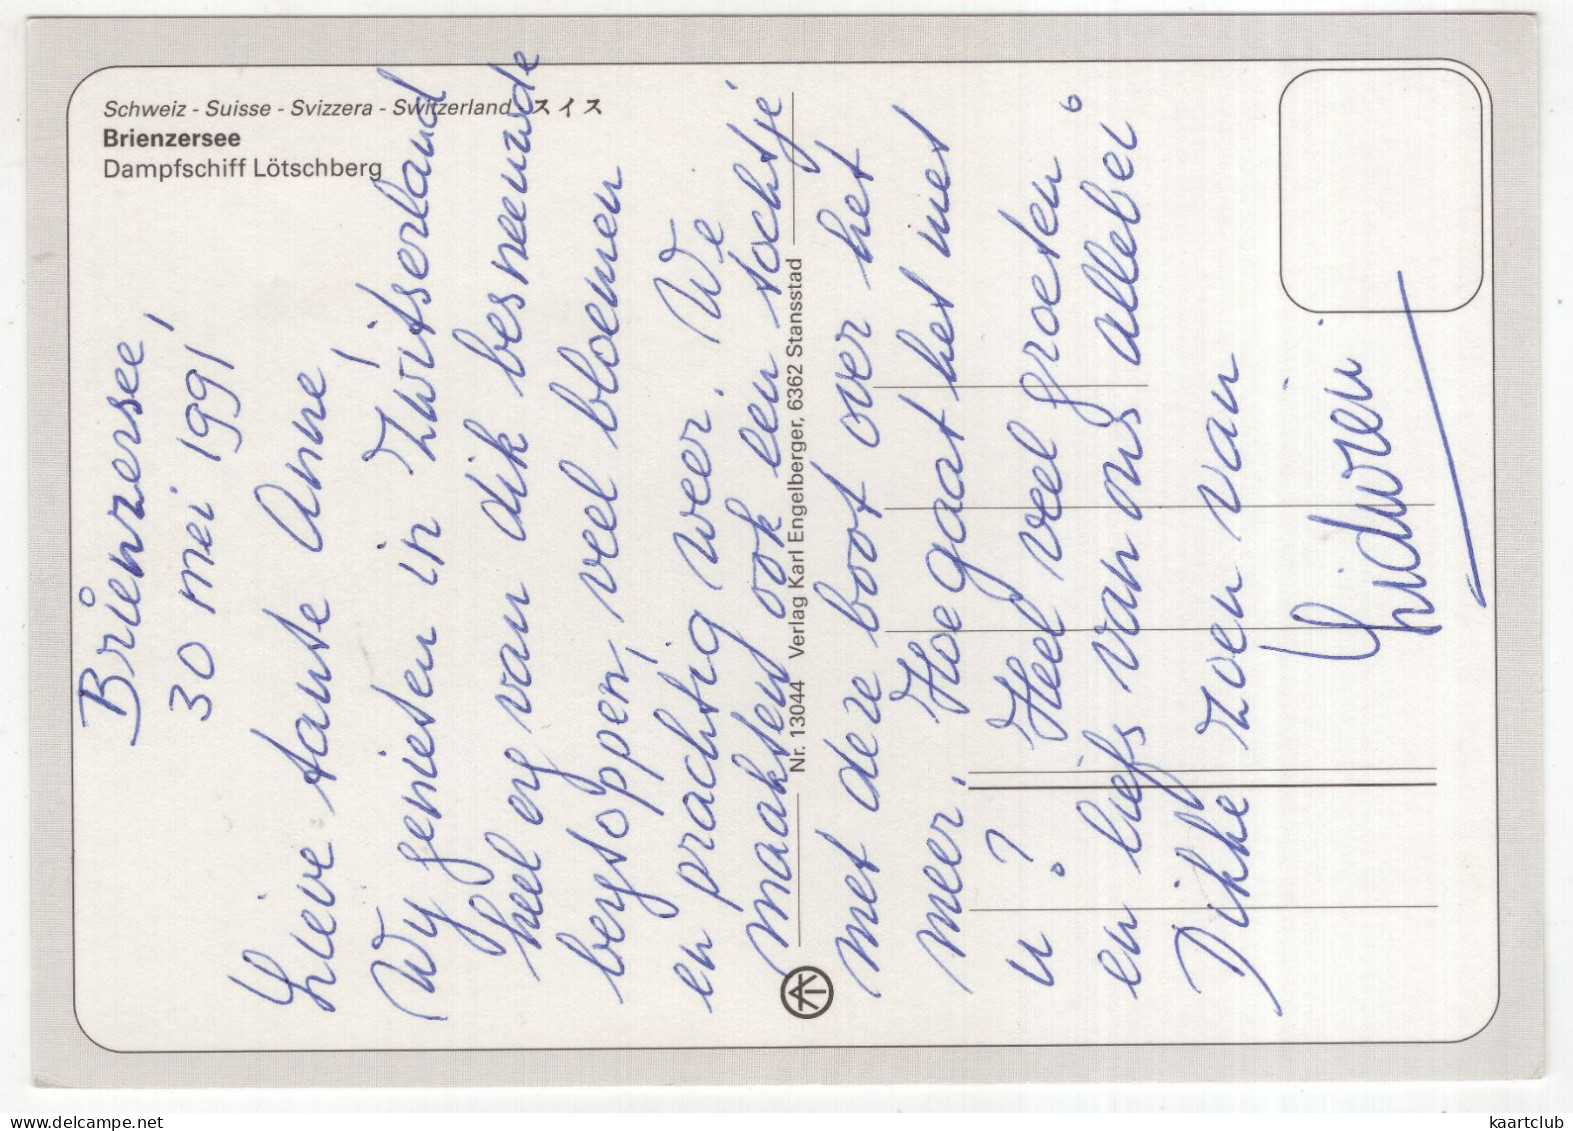 Schweiz - Suisse - Svizzera - Switzerland - スイス
Brienzersee
Dampfschiff Lötschberg
Brienzersee,
30 mei 1991
Lieve tante Anne,
Wij genieten in Zwitserland
heel erg van dik besneeuwde
bergtoppen, veel bloemen
en prachtig weer. We
maakten ook een tochtje
met deze boot over het
meer. Hoe gaat het met
u? Heel veel groeten
en liefs van ons allebei
Dikke zoen van
Lidwien
Nr. 13044 Verlag Karl Engelberger, 6362 Stansstad
www.delcampe.net
kaartclub